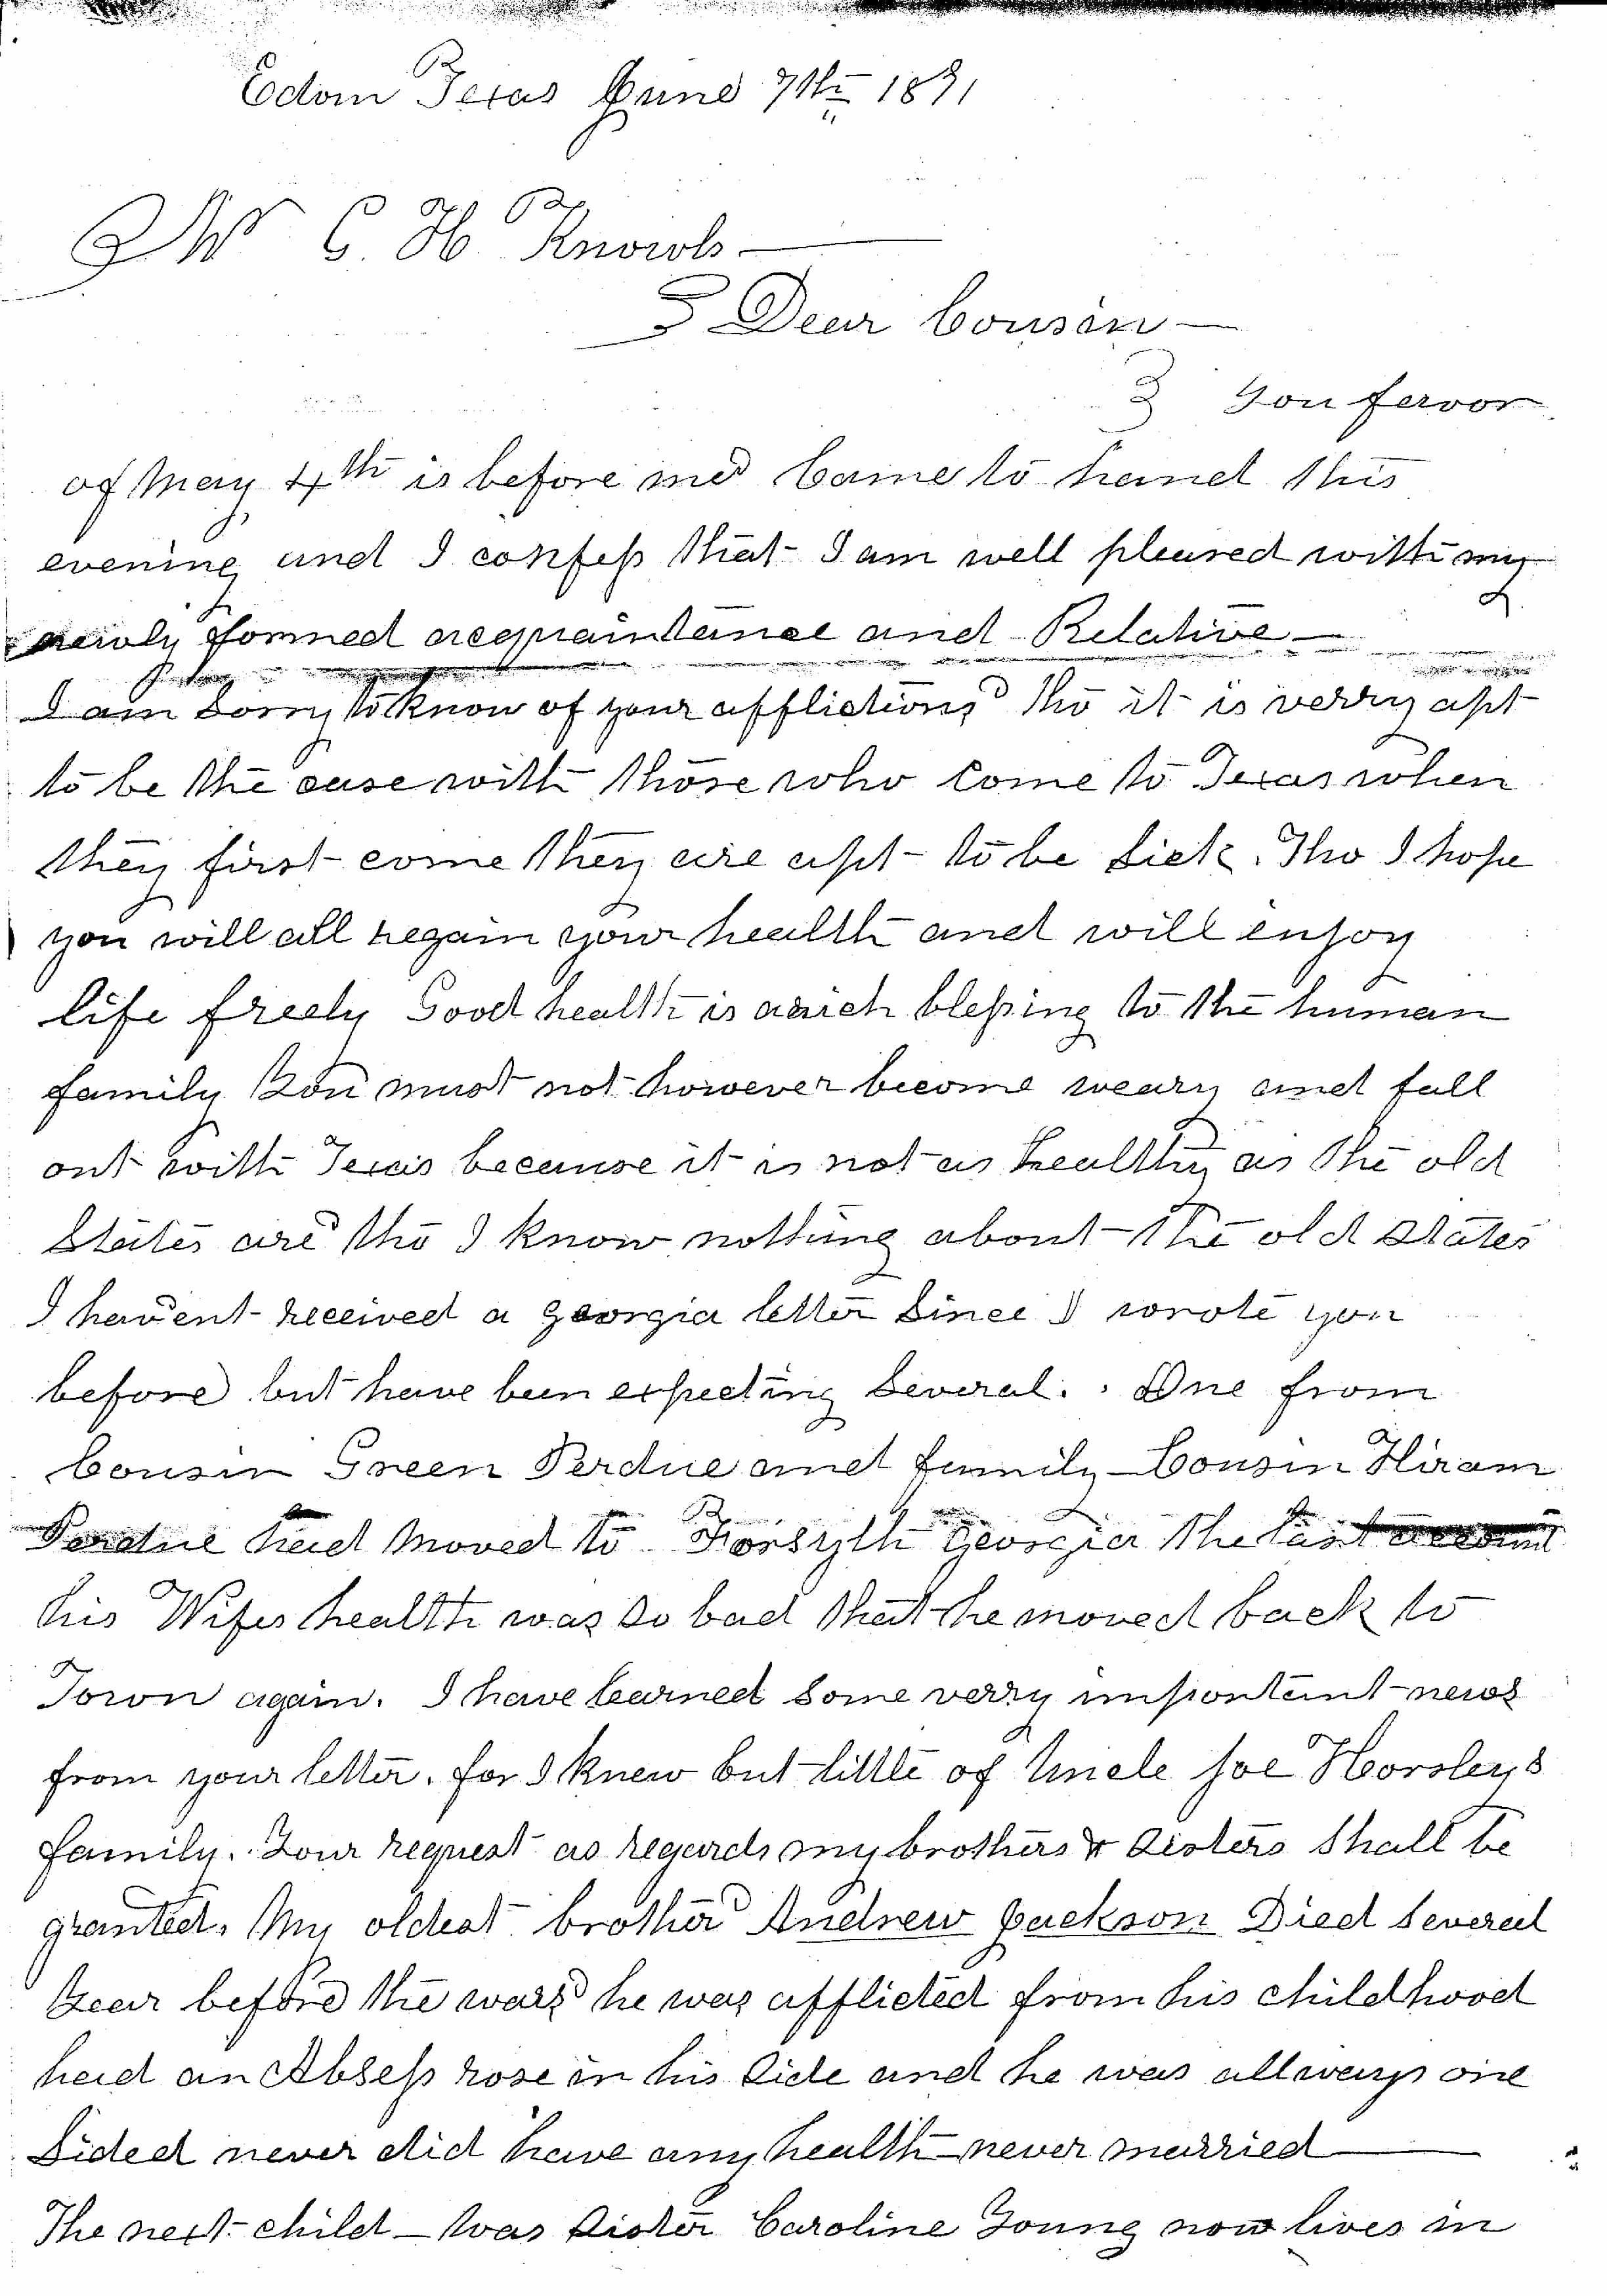 Edom Texas June 7th 1891
W C H Knowls
Dear Cousin
You favor
of May 4th is before me Came to hand this
evening and I confess that I am well pleased with my
newly formed acquaintance and Relative
I am Sorry to know of your afflictions tho it is verry apt
to be the case with those who Come to Texas when
they first come they are apt to be Sick. Tho I hope
you will all regain your health and will enjoy
life freely Good health is a rich blessing to the human
family You must not however become weary and fall
out with Texas because it is not as healthy as the old
States are tho I know nothing about the old States
I hav'ent received a georgia letter Since I wrote you
before but have been expecting Several. One from
Cousin Green Perdue and family Cousin Hiram
Perdue had Moved to Forsyth Georgia the last account
his Wifes health was So bad that he moved back to
Town again. I have learned Some verry important news
from your letter. for I knew but little of Uncle Joe Horsleys
family. Your request as regards my brothers & Sisters Shall be
granted. My oldest brother Andrew Jackson Died Several
Year before the war he was afflicted from his childhood
had an Absess rose in his Side and he was allways one
Sided never did have any health never married
The next child was Sister Caroline Young now lives in